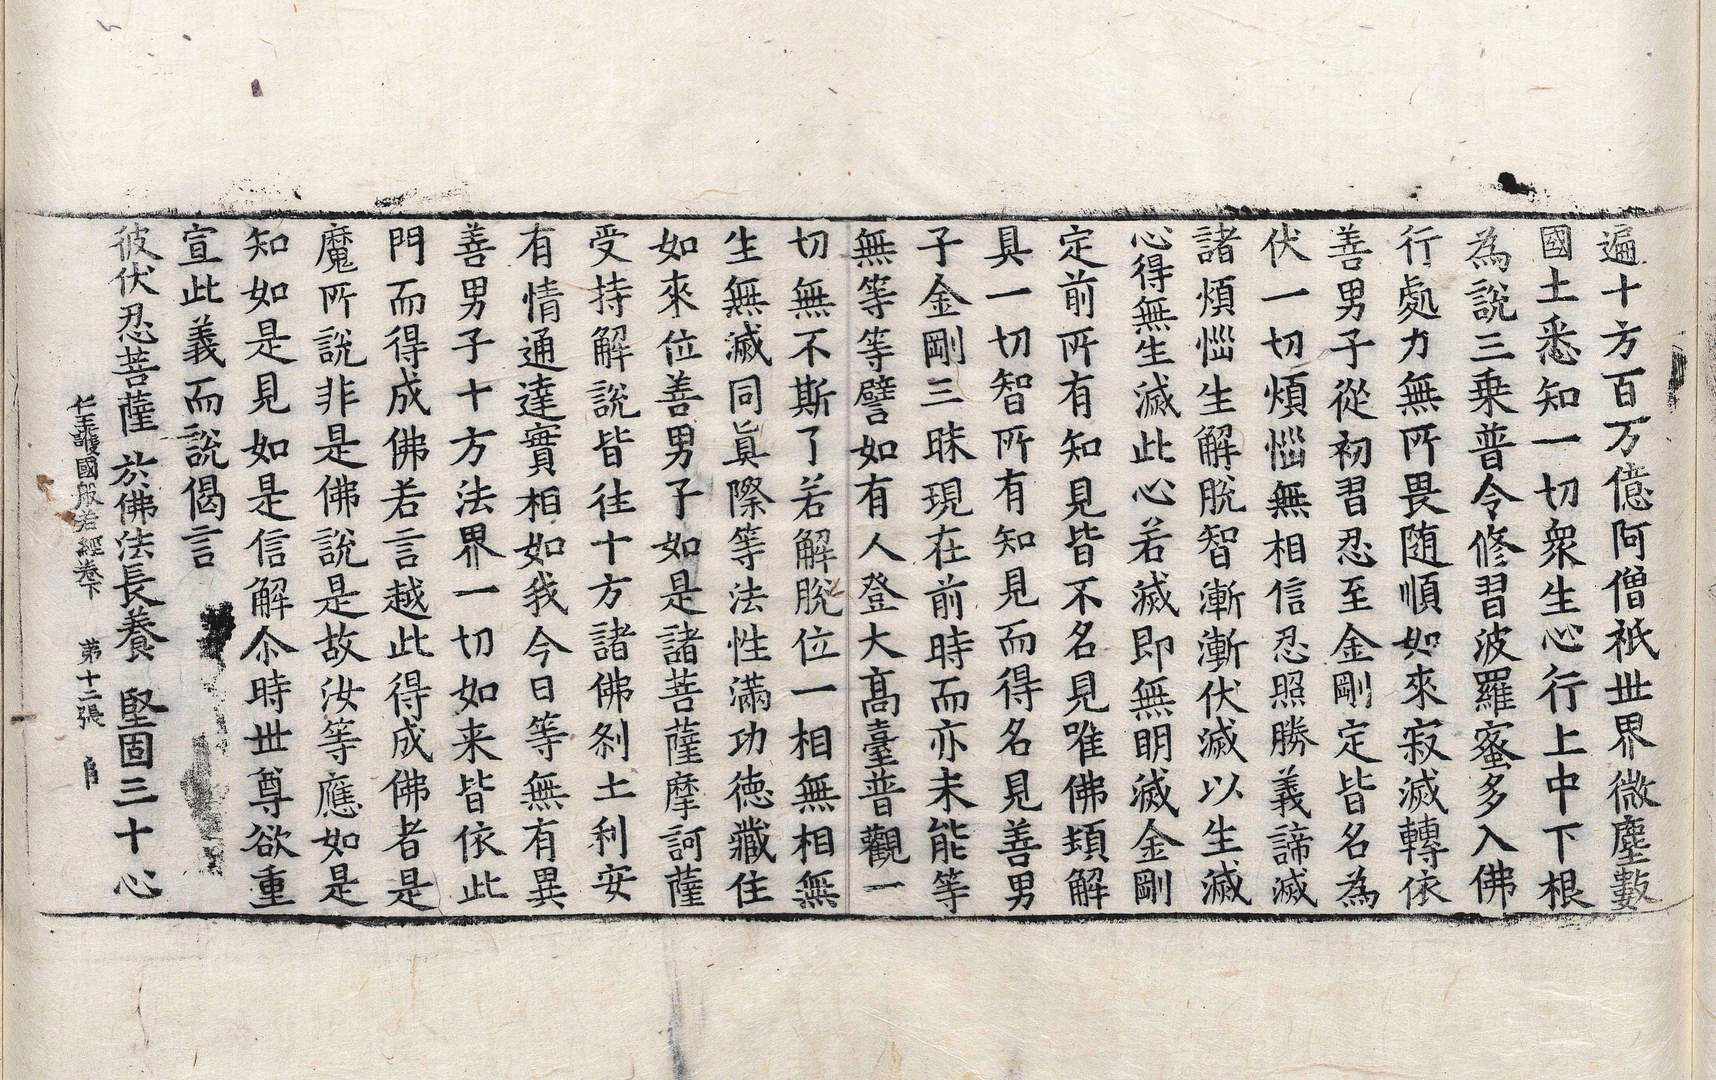 遍十方百万億阿僧祇世界微塵數
國土悉知一切衆生心行上中下根
為說三乗普令修習波羅蜜多入佛
行處力無所畏随順如來寂滅轉依
善男子從初習忍至金剛定皆名為
伏一切煩惱無相信忍照勝義諦滅
諸煩惱生解脫智漸漸伏滅以生滅
心得無生滅此心若滅即無明滅金剛
定前所有知見皆不名見唯佛頓解
具一切智所有知見而得名見善男
子金剛三昧現在前時而亦未能等
無等等譬如有人登大髙臺普觀一
切無不斯了若解脫位一相無相無
生無滅同眞際等法性滿功徳藏住
如來位善男子如是諸菩薩摩訶薩
受持解說皆往十方諸佛刹土利安
有情通達實相如我今日等無有異
善男子十方法界一切如来皆依此
門而得成佛若言越此得成佛者是
魔所說非是佛說是故汝等應如是
知如是見如是信解尒時世尊欲重
宣此義而說偈言
彼伏忍菩薩 於佛法長養 堅固三十心
仁王護國般若經卷下 第十二張